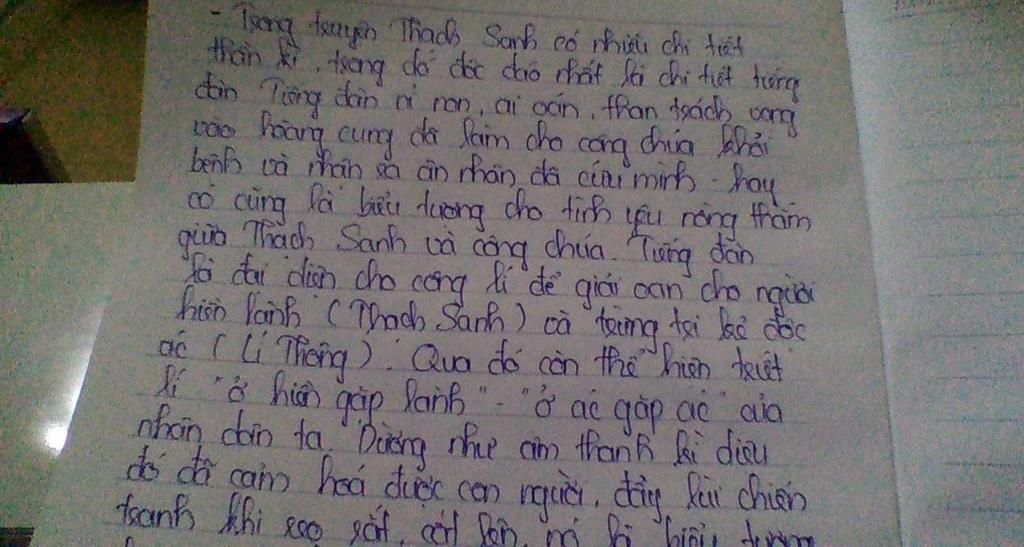 - Trong truyện Thạch Sanh có nhiều chi tiết
thần kì, trong đó độc đáo nhất là chi tiết tiếng
đàn Tiếng đàn nỉ non, ai oán, than trách vang
vào hoàng cung đã làm cho công chúa khỏi
bệnh và nhận ra ân nhân đã cứu mình - hay
nó cũng là biểu tượng cho tình yêu nồng thắm
giữa Thạch Sanh và công chúa. Tiếng đàn
là đại diện cho công lí để giải oan cho người
hiền lành (Thạch Sanh) và trừng trị kẻ độc
ác (Lí Thông). Qua đó còn thể hiện triết
lí "ở hiền gặp lành" - "ở ác gặp ác" của
nhân dân ta. Dường như âm thanh kì diệu
đó đã cảm hoá được con người, đẩy lùi chiến
tranh khi reo rắt, cất lên, nó là biểu tượng